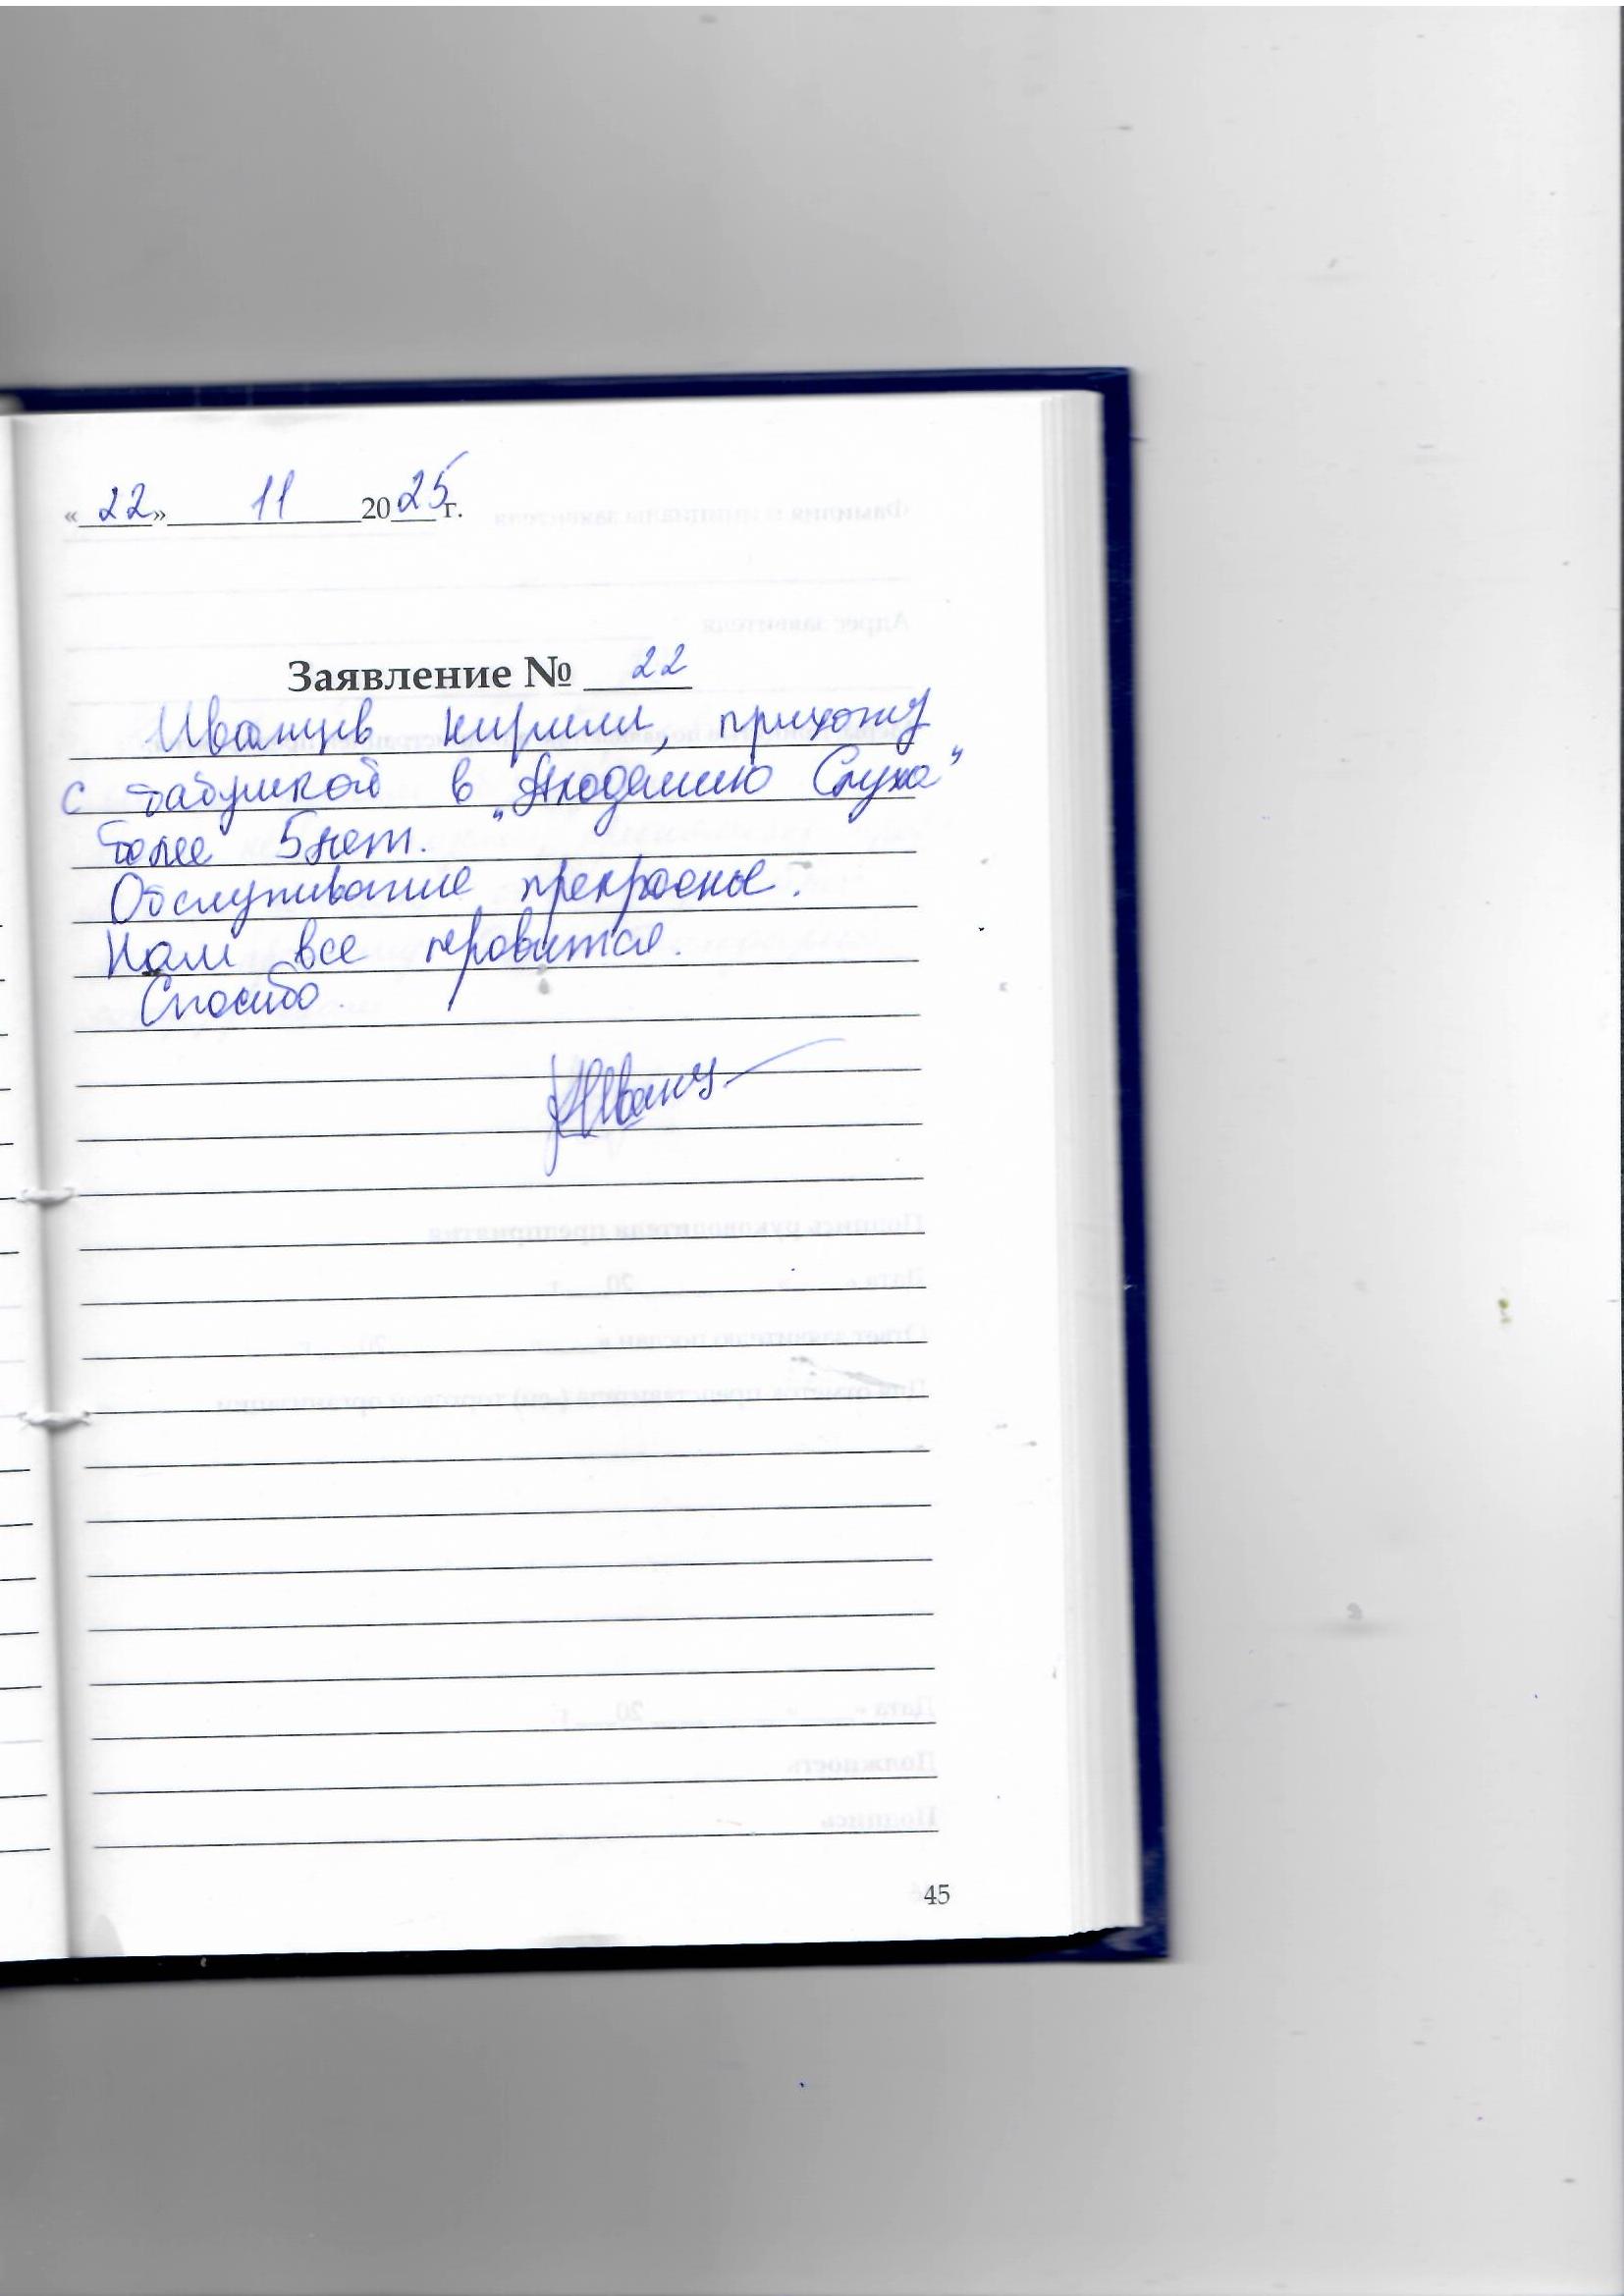 «22» 11 2025 г.
Заявление № 22
Иванцив Кирилл, прихожу
с бабушкой в "Академию Слуха"
более 5 лет.
Обслуживание прекрасное.
Нам все нравится.
Спасибо.
45